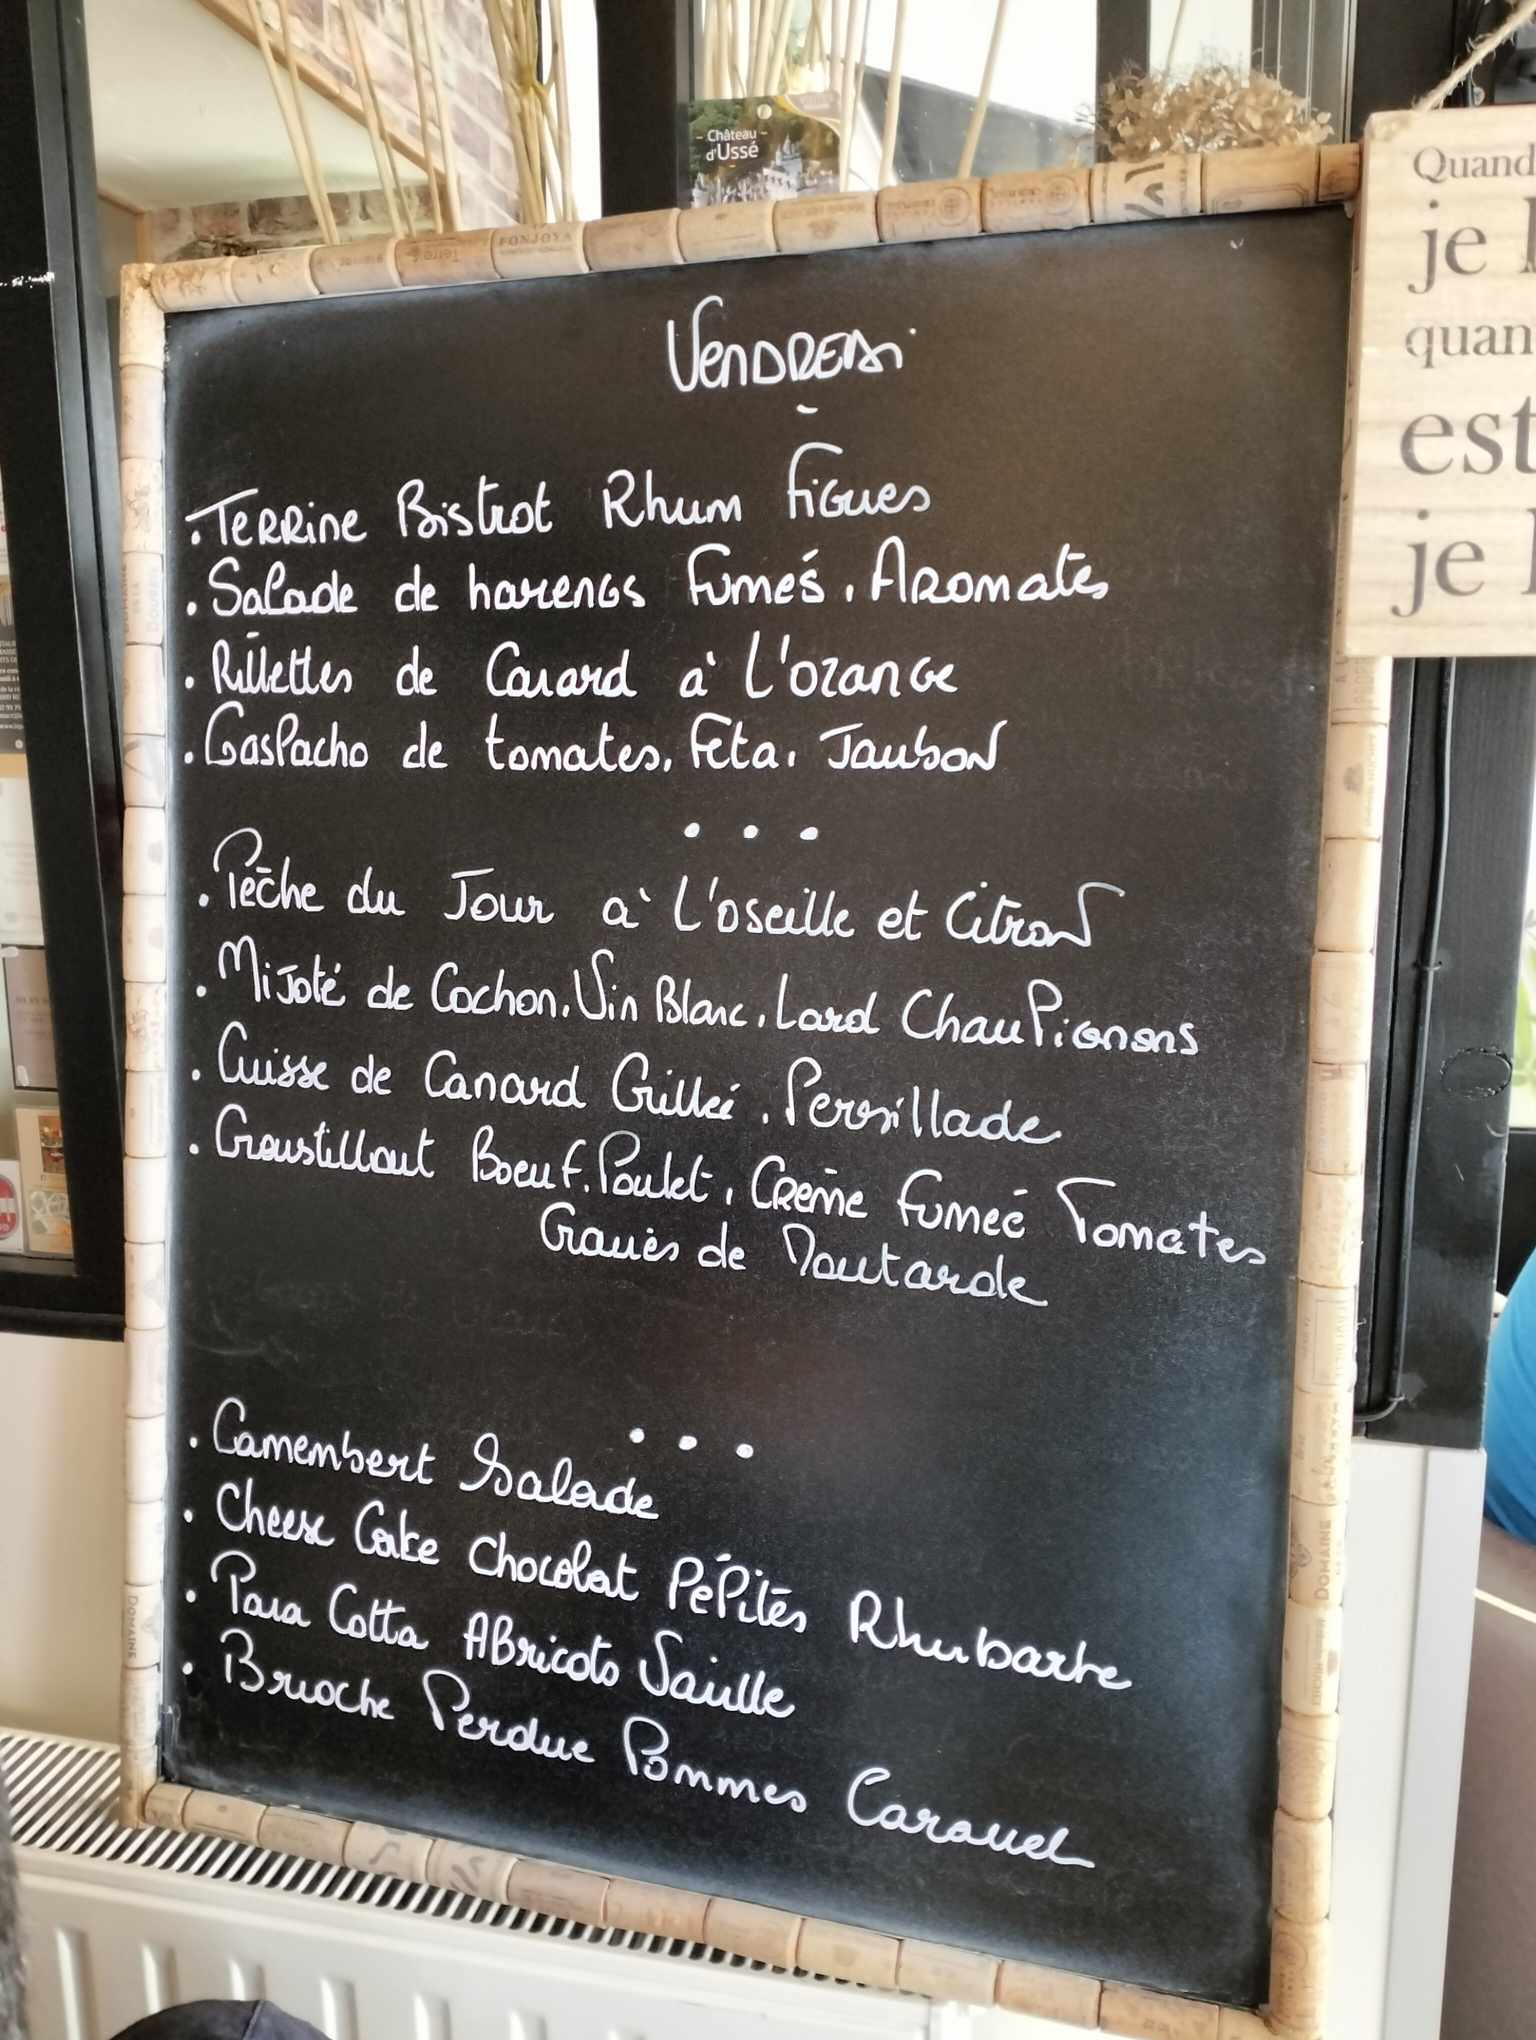 Château
d'Ussé
FONJOYA
Quand
je
quan
est
je
VENDREDI
-
. Terrine Bistrot Rhum Figues
. Salade de harengs Fumés, Aromates
. Rillettes de Canard à L'orange
. Gaspacho de tomates, Feta, Jambon
. . .
. Pêche du Jour à L'oseille et Citron
. Mijoté de Cochon, Vin Blanc, Lard Champignons
. Cuisse de Canard Grillé, Persillade
. Croustillant Boeuf, Poulet, Crème Fumée Tomates
Graines de Moutarde
. . .
. Camembert Salade
. Cheese Cake Chocolat Pépites Rhubarbe
. Pana Cotta Abricots Vanille
. Brioche Perdue Pommes Caramel
DOMAINE
DOMAINE